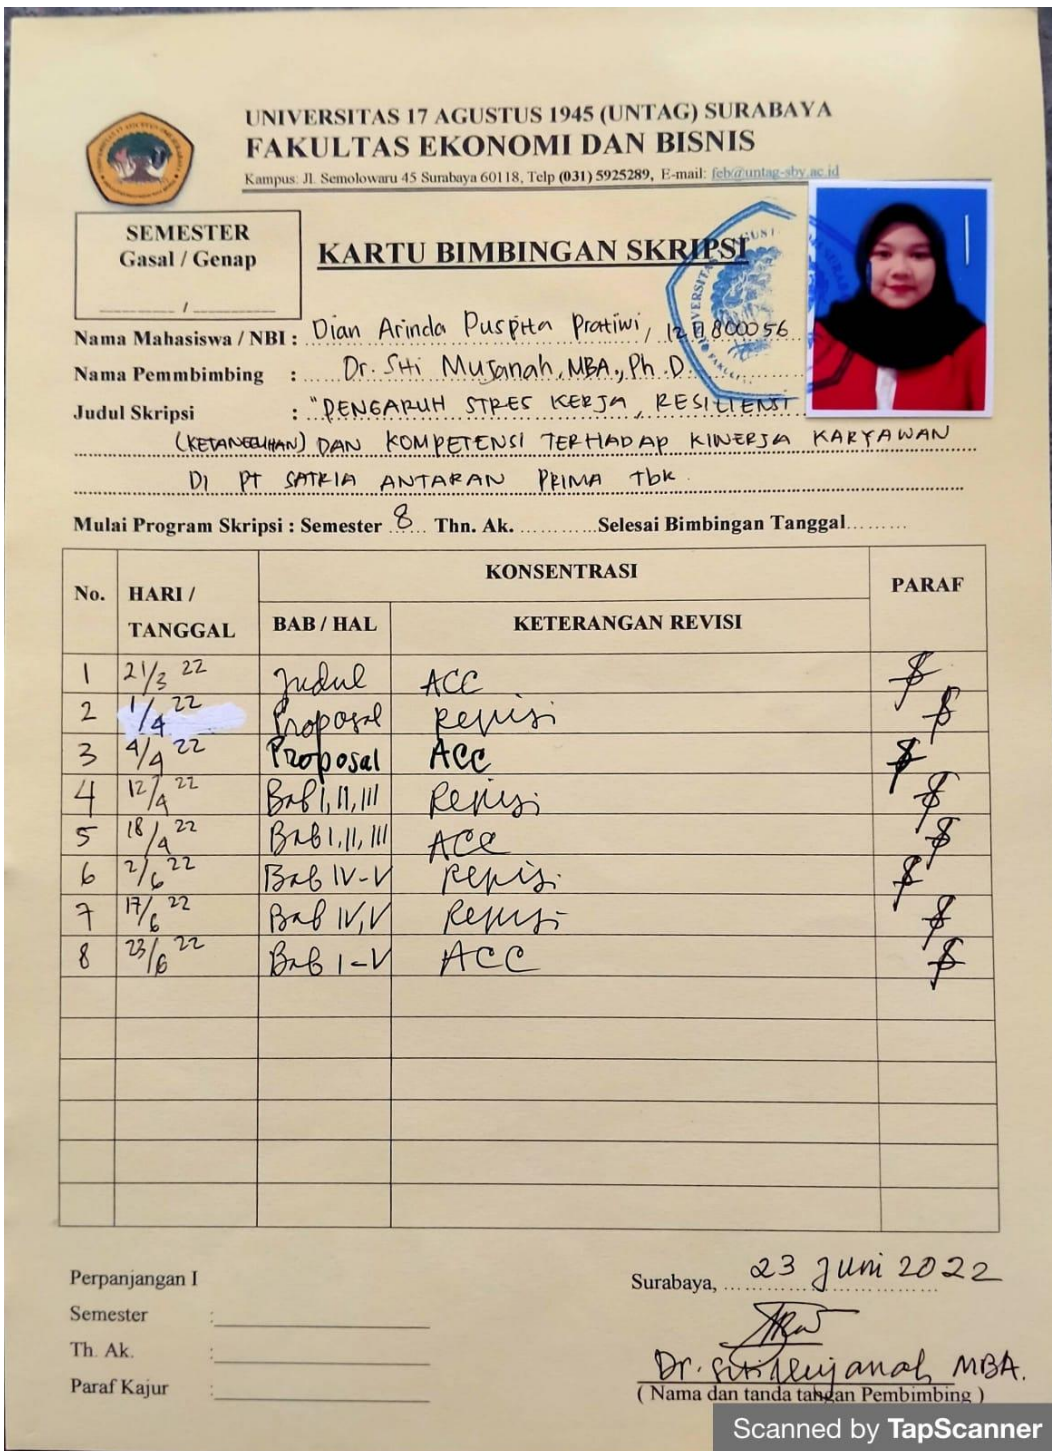 UNIVERSITAS 17 AGUSTUS 1945 (UNTAG) SURABAYA
FAKULTAS EKONOMI DAN BISNIS
Kampus: Jl. Semolowaru 45 Surabaya 60118, Telp (031) 5925289, E-mail: feb@untag-sby.ac.id
SEMESTER
Gasal / Genap
/
KARTU BIMBINGAN SKRIPSI
Nama Mahasiswa / NBI : Dian Arinda Puspita Pratiwi,
Nama Pemmbimbing : Dr. Siti Mujanah, MBA., Ph.D
Judul Skripsi : "PENGARUH STRES KERJA, RESILIENSI
(KETANGGUHAN) DAN KOMPETENSI TERHADAP KINERJA KARYAWAN
DI PT SATRIA ANTARAN PRIMA Tbk.
Mulai Program Skripsi : Semester 8 Thn. Ak. ............Selesai Bimbingan Tanggal.........
No. HARI / TANGGAL KONSENTRASI PARAF
BAB / HAL KETERANGAN REVISI
1 21/3 22 Judul ACC
2 1/4 22 Proposal Revisi
3 4/4 22 Proposal ACC
4 12/4 22 Bab I, II, III Revisi
5 18/4 22 Bab I, II, III ACC
6 2/6 22 Bab IV-V Revisi
7 17/6 22 Bab IV, V Revisi
8 23/6 22 Bab I-V ACC
Perpanjangan I
Semester :
Th. Ak. :
Paraf Kajur :
Surabaya, 23 Juni 2022
Dr. Siti Mujanah MBA.
( Nama dan tanda tangan Pembimbing )
Scanned by TapScanner